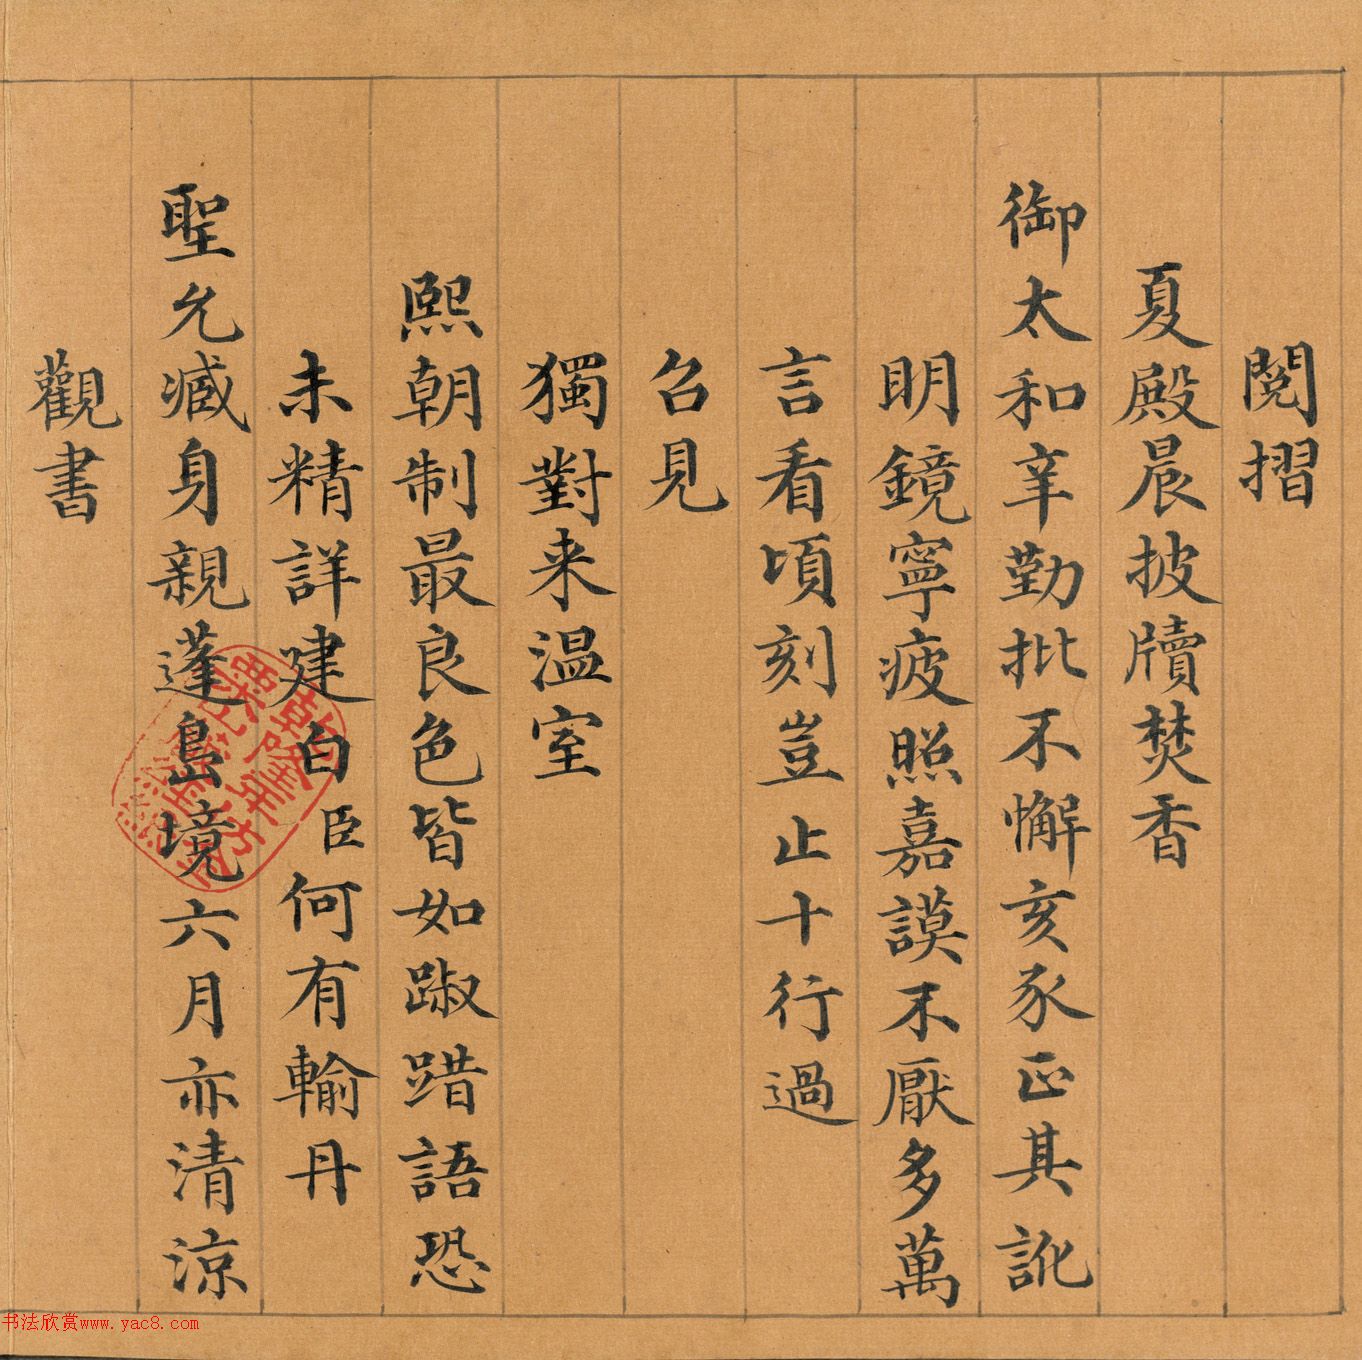 閱摺
夏殿晨披牘焚香
御太和辛勤批不懈亥豕正其訛
明鏡寧疲照嘉謨不厭多萬
言看頃刻豈止十行過
召見
獨對来温室
熙朝制最良色皆如踧踖語恐
未精詳建白臣何有輸丹
聖允臧身親蓬島境六月亦清涼
觀書
乾隆年仿
书法欣赏www.yac8.com